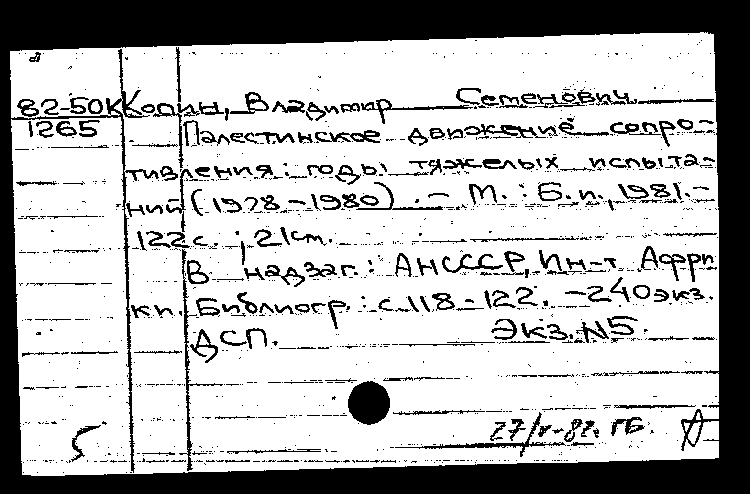 82-50К Кошин, Владимир Семенович.
1265 Палестинское движение сопро-
тивления: годы тяжелых испыта-
ний (1978-1980). - М.: Б.и., 1981.-
122 с. ; 21см.
В надзаг.: АНСССР, Ин-т Афри
ки. Библиогр.: с.118-122. -240экз.
ДСП. Экз. N5.
27/V-82. ГБ.
5